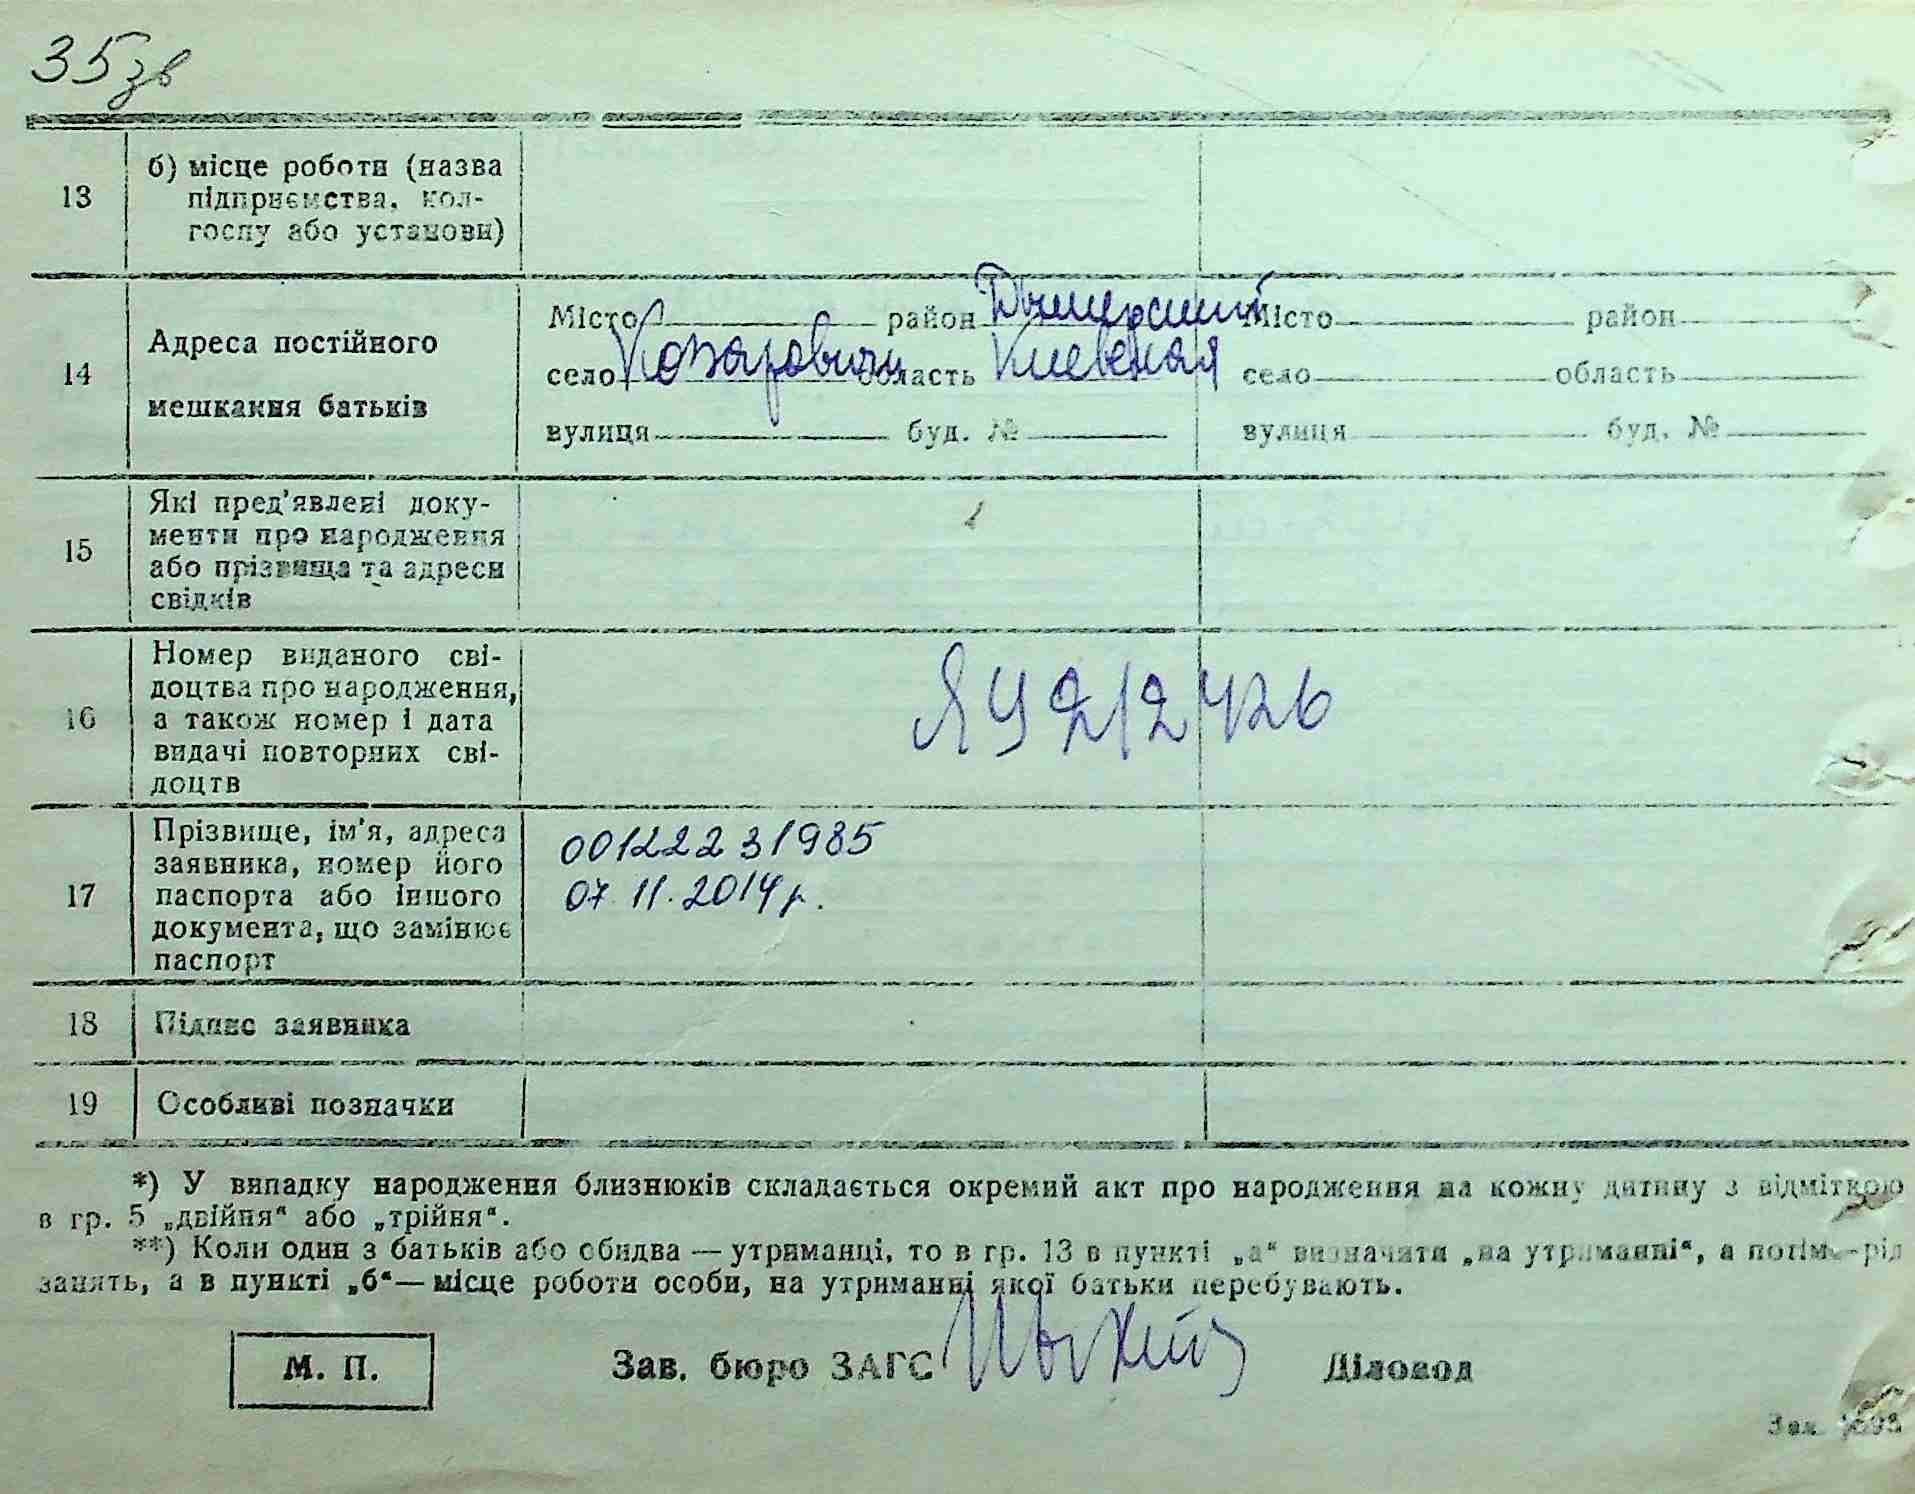 35зв
13
б) місце роботи (назва
підприємства, кол-
госпу або установи)
14
Адреса постійного
мешкання батьків
Місто район Дымерский
село Козаровичи область Киевская
вулиця буд. №
Місто район
село область
вулиця буд. №
15
Які пред'явлені доку-
менти про народження
або прізвища та адреси
свідків
16
Номер виданого сві-
доцтва про народження,
а також номер і дата
видачі повторних сві-
доцтв
ЯЧ 212426
17
Прізвище, ім'я, адреса
заявника, номер його
паспорта або іншого
документа, що замінює
паспорт
00122231985
07.11.2014р.
18
Підпис заявника
19
Особливі позначки
*) У випадку народження близнюків складається окремий акт про народження на кожну дитину з відміткою
в гр. 5 „двійня“ або „трійня“.
**) Коли один з батьків або обидва — утриманці, то в гр. 13 в пункті „а“ визначати „на утриманні“, а потім — рід
занять, а в пункті „б“ — місце роботи особи, на утриманні якої батьки перебувають.
М. П.
Зав. бюро ЗАГС
Діловод
Зак.